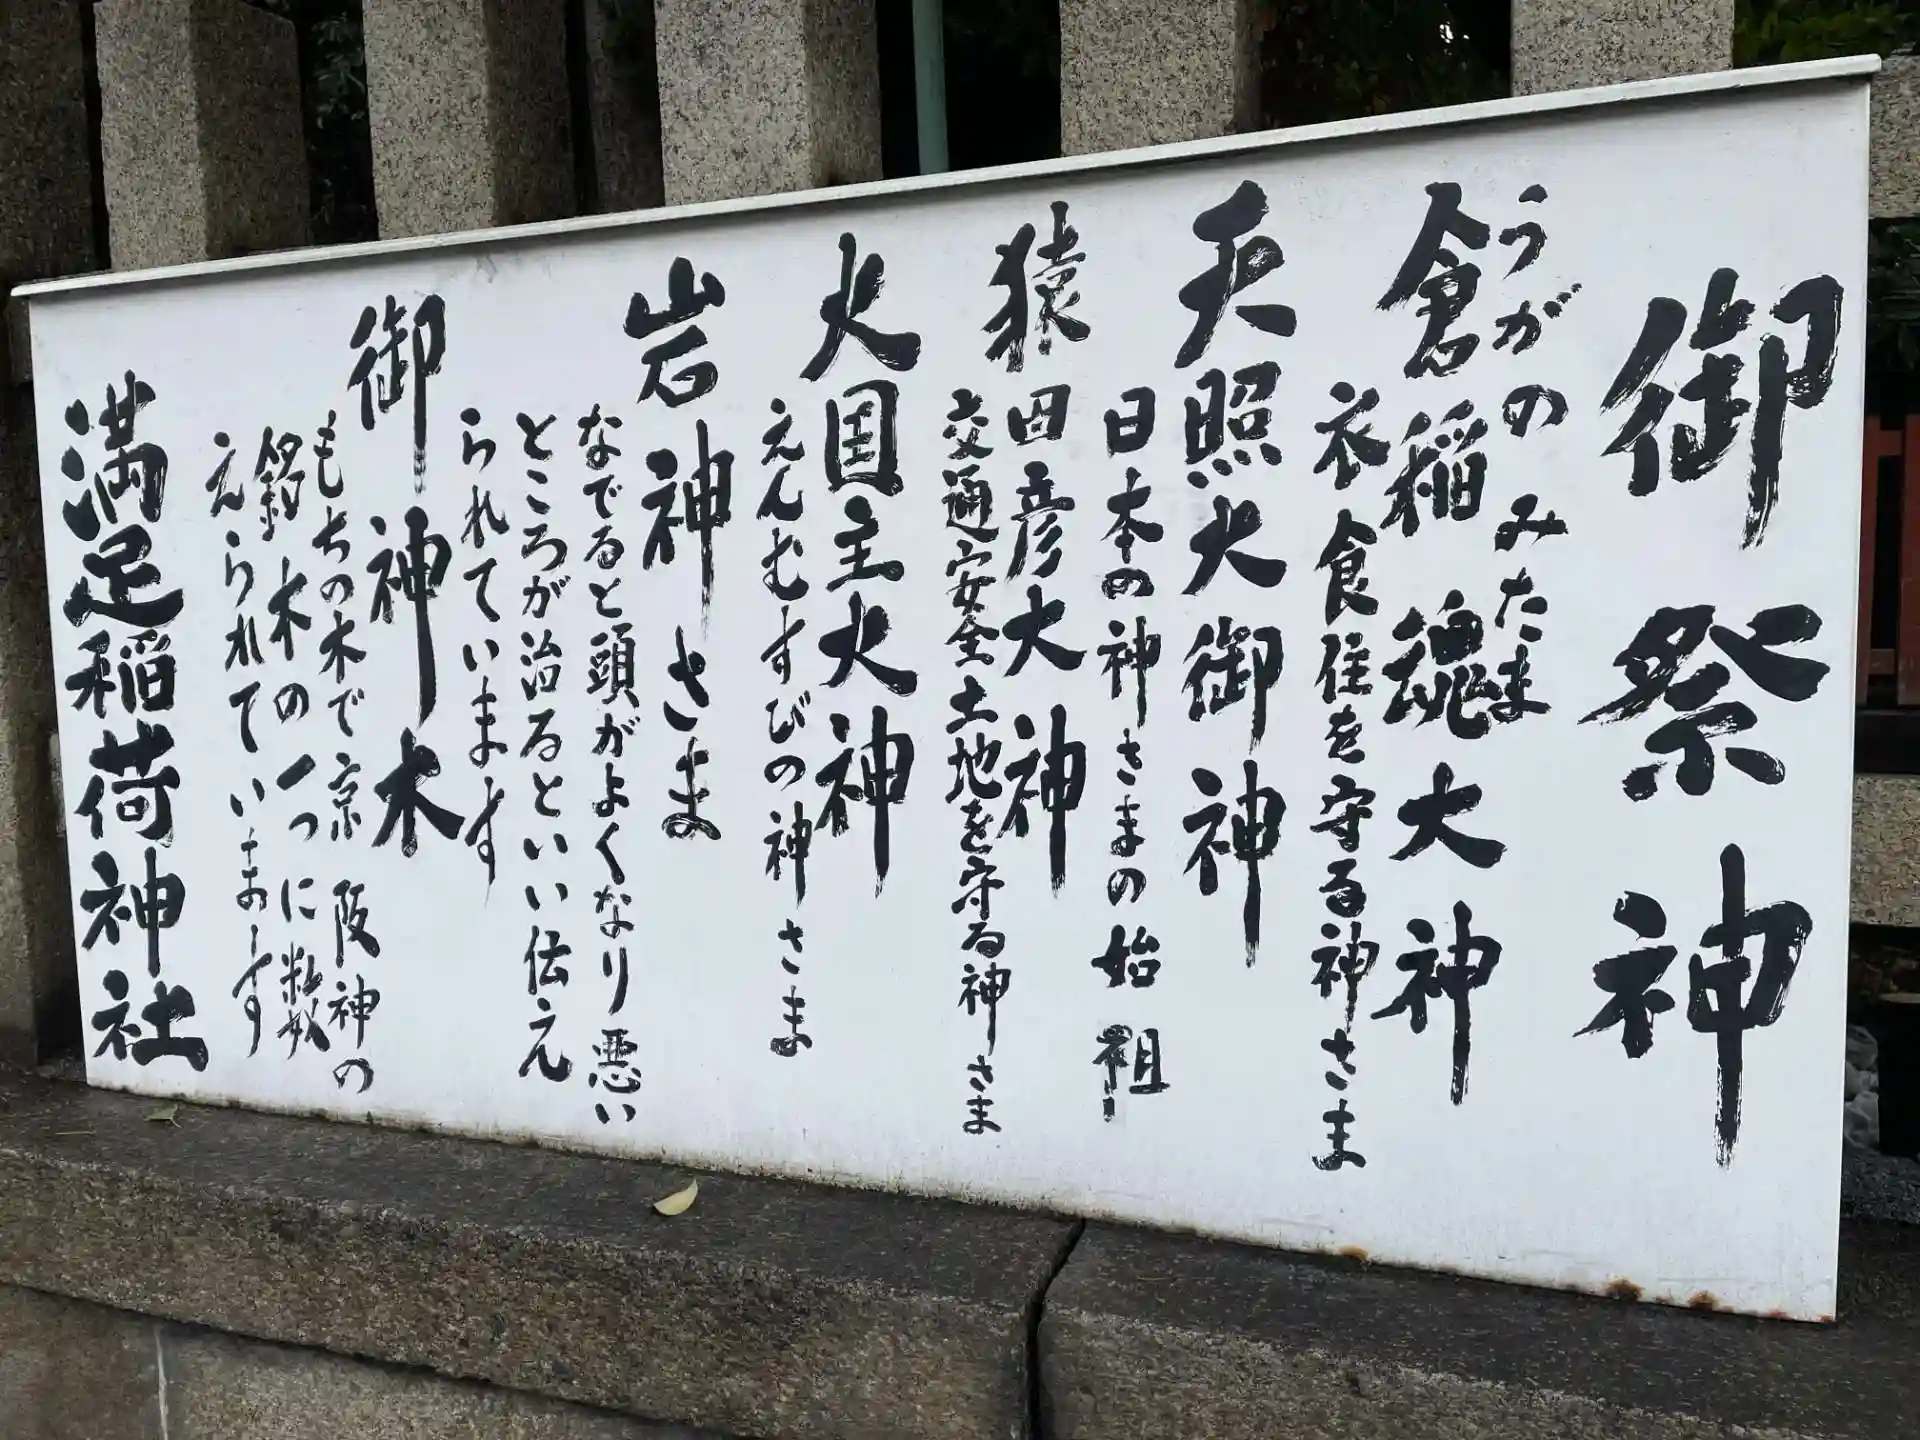 御祭神
うがのみたま
倉稲魂大神
衣食住を守る神さま
天照大御神
日本の神さまの始祖
猿田彦大神
交通安全土地を守る神さま
大国主大神
えんむすびの神さま
岩神さま
なでると頭がよくなり悪い
ところが治るといい伝え
られています
御神木
もちの木で京阪神の
銘木の一つに数
えられています
満足稲荷神社